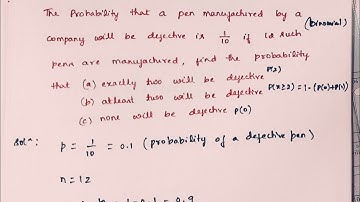 The Probability that a pen manufactured by a
company will be defective is 1/10 if 12 such (binomial)
pens are manufactured, find the probability
that (a) exactly two will be defective P(2)
(b) atleast two will be defective P(n≥2) = 1-(P(0)+P(1))
(c) none will be defective P(0)
Solⁿ: P = 1/10 = 0.1 (probability of a defective pen)
n = 12
= 1 - 0.1 = 0.9